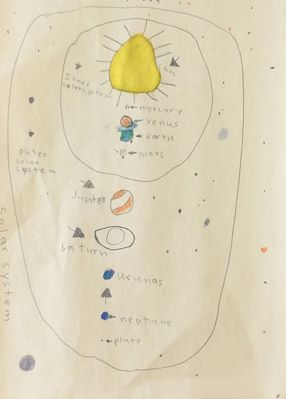 sun
Inner
solar system
mercury
venus
earth
mars
outer
solar
system
Jupiter
saturn
Urunas
neptune
pluto
solar system